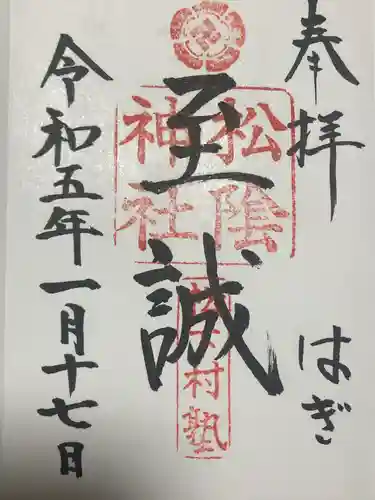 奉拝 はぎ
松陰神社
至誠
松下村塾
令和五年一月十七日